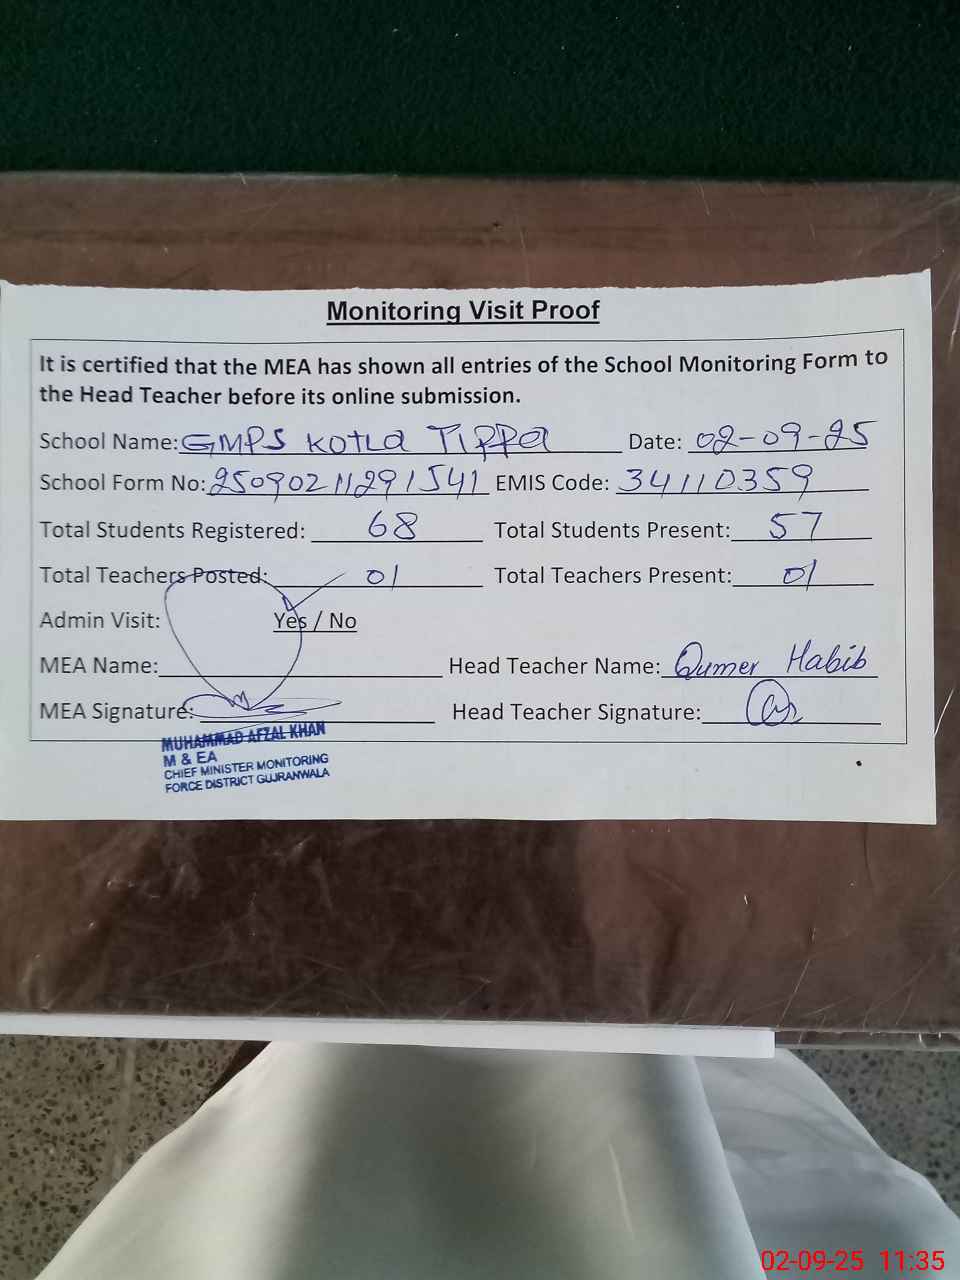 Monitoring Visit Proof
It is certified that the MEA has shown all entries of the School Monitoring Form to
the Head Teacher before its online submission.
School Name: GMPS KOTLA TIPPA Date: 02-09-25
School Form No: 25090211291541 EMIS Code: 34110359
Total Students Registered: 68 Total Students Present: 57
Total Teachers Posted: 01 Total Teachers Present: 01
Admin Visit: Yes / No
MEA Name: Head Teacher Name: Qumer Habib
MEA Signature: Head Teacher Signature:
MUHAMMAD AFZAL KHAN
M & EA
CHIEF MINISTER MONITORING
FORCE DISTRICT GUJRANWALA
02-09-25 11:35